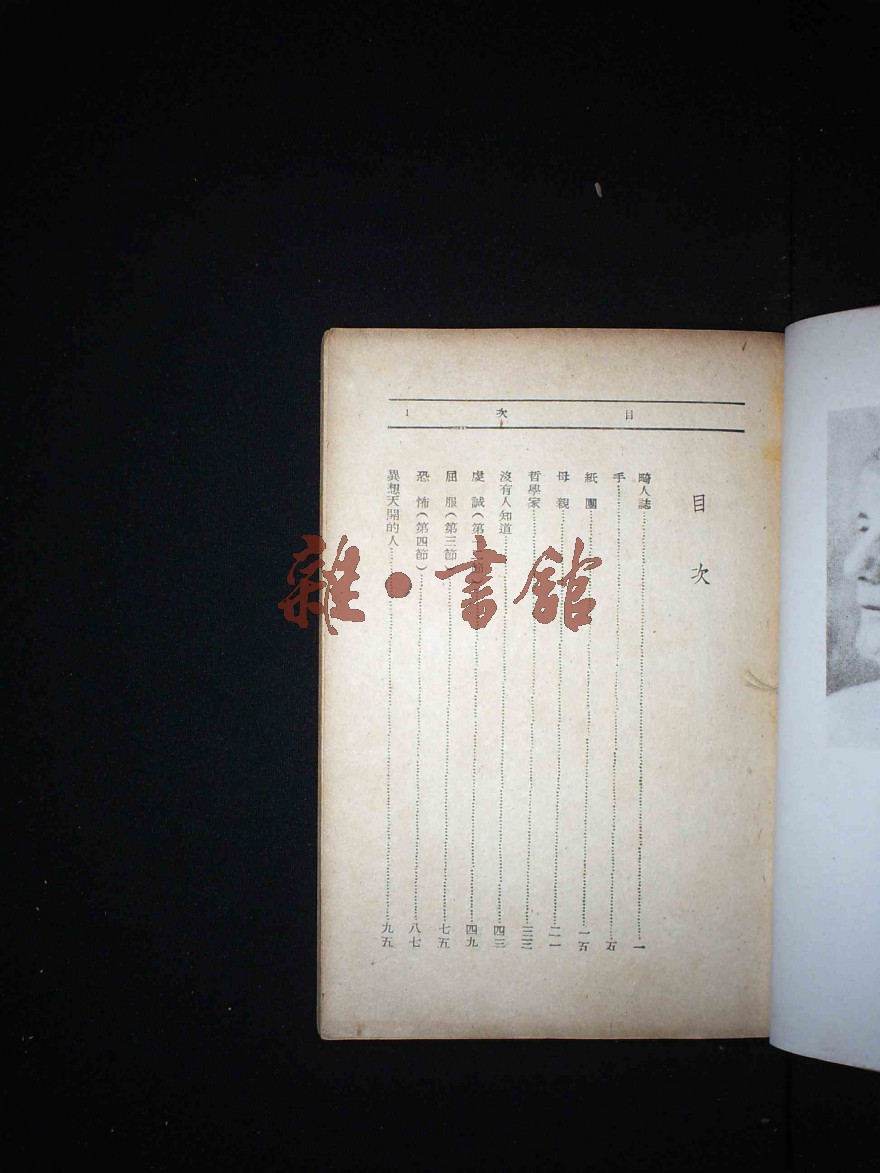 目次 1
目次
畸人誌 一
手 五
紙團 一五
母親 二一
哲學家 三三
沒有人知道 四三
虔誠(第 節 四九
屈服(第三節) 七五
恐怖(第四節) 八七
異想天開的人 九五
雜·書館